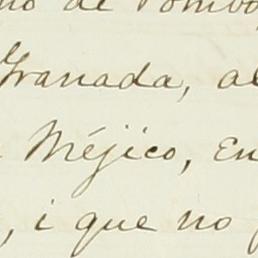 no de Pombo
Granada, al
Méjico, en
, i que no